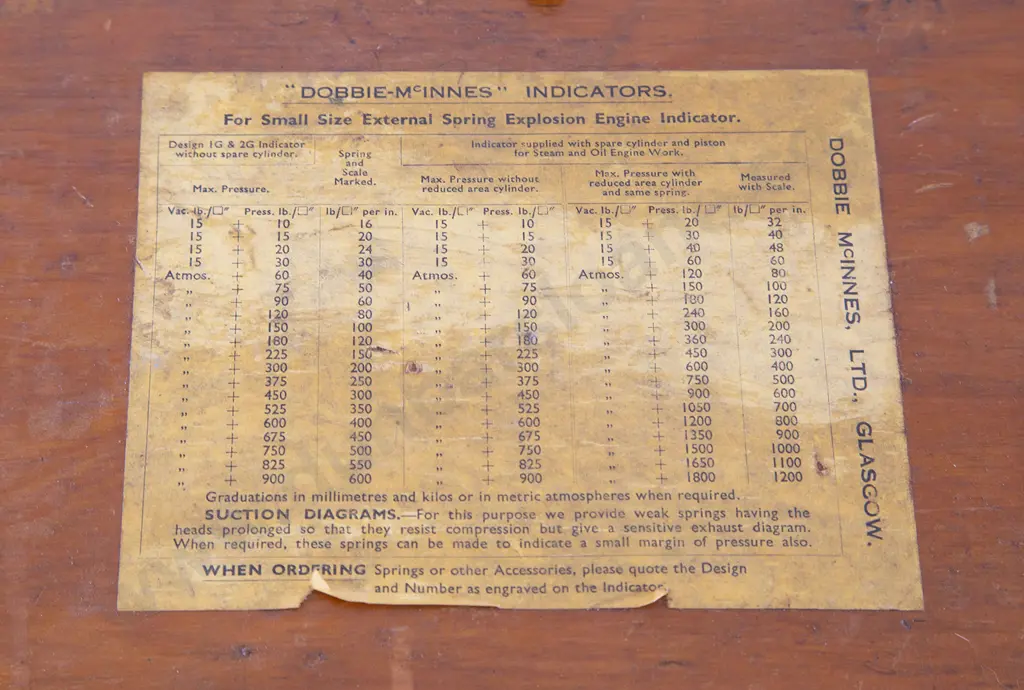 "DOBBIE-McINNES" INDICATORS.
For Small Size External Spring Explosion Engine Indicator.
Design 1G & 2G Indicator without spare cylinder.
Max. Pressure.
Spring and Scale Marked.
Indicator supplied with spare cylinder and piston for Steam and Oil Engine Work.
Max. Pressure without reduced area cylinder.
Max. Pressure with reduced area cylinder and same spring.
Measured with Scale.
Vac. lb./□" Press. lb./□" lb/□" per in. Vac. lb./□" Press. lb./□" Vac. lb./□" Press. lb./□" lb/□" per in.
15 + 10 16 15 + 10 15 + 20 32
15 + 15 20 15 + 15 15 + 30 40
15 + 20 24 15 + 20 15 + 40 48
15 + 30 30 15 + 30 15 + 60 60
Atmos. + 60 40 Atmos. + 60 Atmos. + 120 80
„ + 75 50 „ + 75 „ + 150 100
„ + 90 60 „ + 90 „ + 180 120
„ + 120 80 „ + 120 „ + 240 160
„ + 150 100 „ + 150 „ + 300 200
„ + 180 120 „ + 180 „ + 360 240
„ + 225 150 „ + 225 „ + 450 300
„ + 300 200 „ + 300 „ + 600 400
„ + 375 250 „ + 375 „ + 750 500
„ + 450 300 „ + 450 „ + 900 600
„ + 525 350 „ + 525 „ + 1050 700
„ + 600 400 „ + 600 „ + 1200 800
„ + 675 450 „ + 675 „ + 1350 900
„ + 750 500 „ + 750 „ + 1500 1000
„ + 825 550 „ + 825 „ + 1650 1100
„ + 900 600 „ + 900 „ + 1800 1200
Graduations in millimetres and kilos or in metric atmospheres when required.
SUCTION DIAGRAMS.—For this purpose we provide weak springs having the
heads prolonged so that they resist compression but give a sensitive exhaust diagram.
When required, these springs can be made to indicate a small margin of pressure also.
WHEN ORDERING Springs or other Accessories, please quote the Design
and Number as engraved on the Indicator.
DOBBIE McINNES, LTD., GLASGOW.